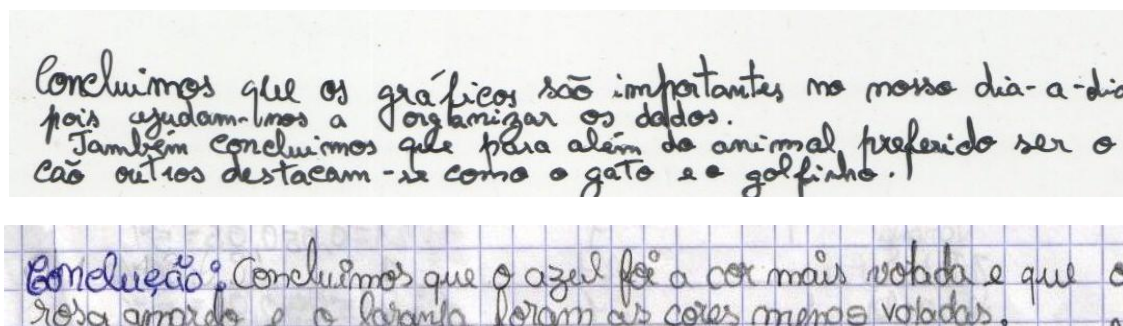 Concluimos que os gráficos são importantes no nosso dia-a-dia
pois ajudam-nos a organizar os dados.
Também concluimos que para além do animal preferido ser o
cão outros destacam-se como o gato e o golfinho.
Conclução: Concluímos que o azul foi a cor mais votada e que o
rosa amarelo e o laranja foram as cores menos votadas.